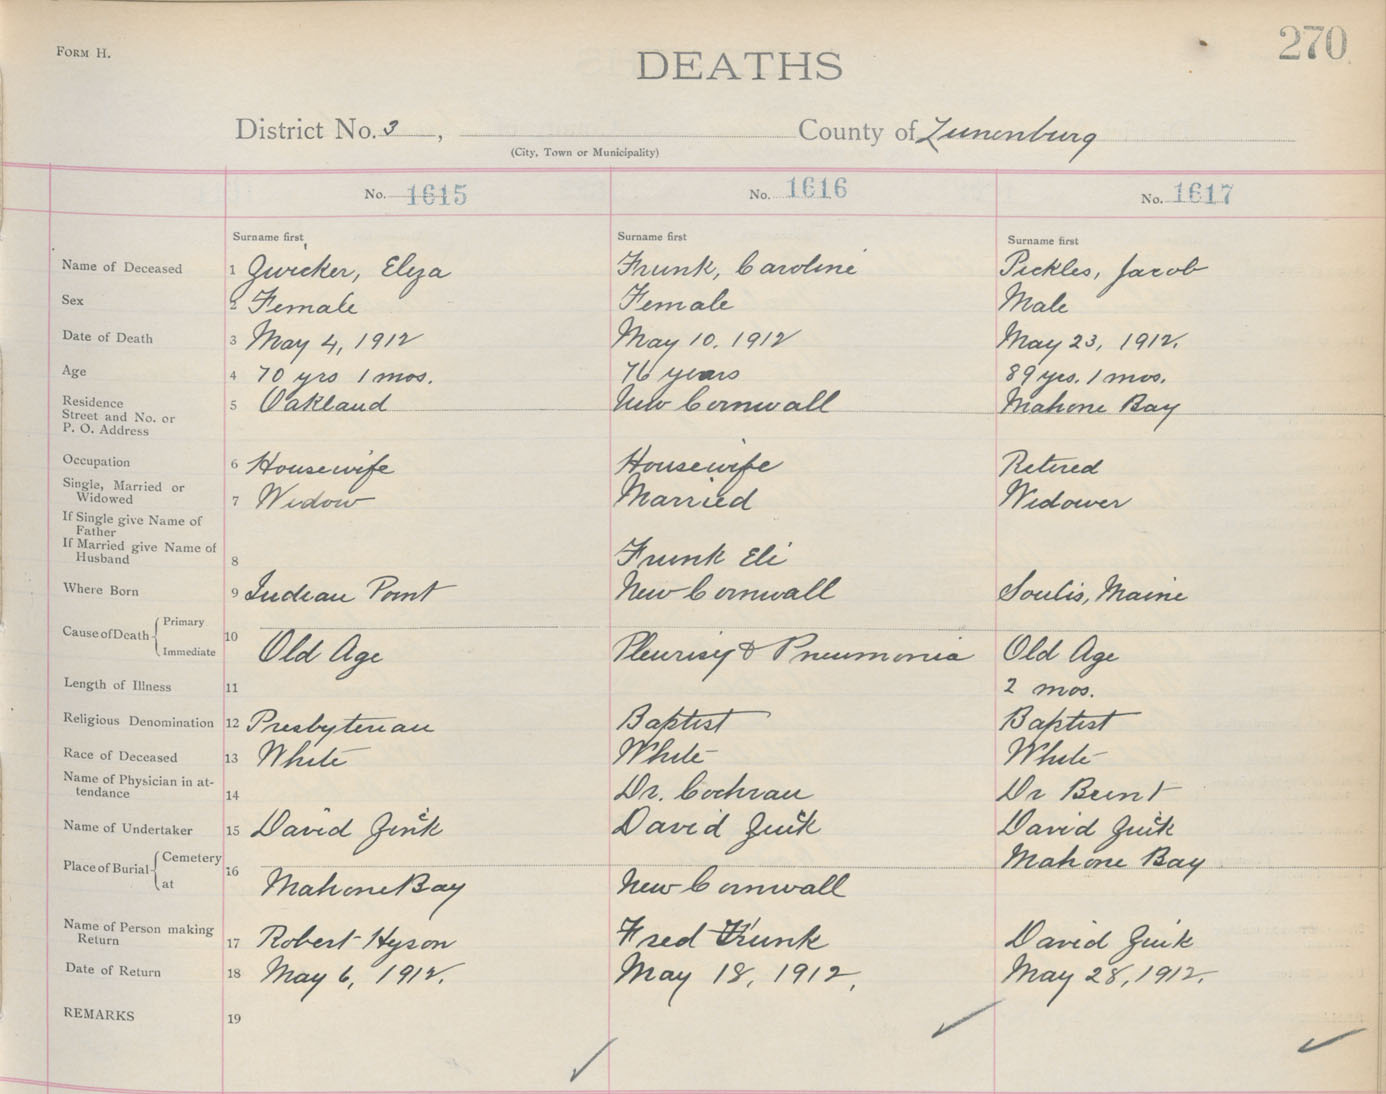 FORM H.
270
DEATHS
District No. 3, County of Lunenburg
(City, Town or Municipality)
No. 1615 No. 1616 No. 1617
Surname first Surname first Surname first
Name of Deceased 1 Zwicker, Elyza Frunk, Caroline Pickles, Jacob
Sex 2 Female Female Male
Date of Death 3 May 4, 1912 May 10, 1912 May 23, 1912.
Age 4 70 yrs 1 mos. 76 years 89 yrs. 1 mos.
Residence 5 Oakland New Cornwall Mahone Bay
Street and No. or
P. O. Address
Occupation 6 Housewife Housewife Retired
Single, Married or
Widowed 7 Widow Married Widower
If Single give Name of
Father
If Married give Name of
Husband 8 Frunk Eli
Where Born 9 Indean Point New Cornwall Maine
Cause of Death Primary
Immediate 10 Old Age Pleurisy & Pneumonia Old Age
Length of Illness 11 2 mos.
Religious Denomination 12 Presbyterian Baptist Baptist
Race of Deceased 13 White White White
Name of Physician in at-
tendance 14 Dr. Cochran Dr
Name of Undertaker 15 David Zinck David Zinck David Zinck
Place of Burial Cemetery Mahone Bay
at 16 Mahone Bay New Cornwall
Name of Person making
Return 17 Robert Hyson Fred Frunk David Zink
Date of Return 18 May 6, 1912. May 18, 1912, May 28, 1912.
REMARKS 19